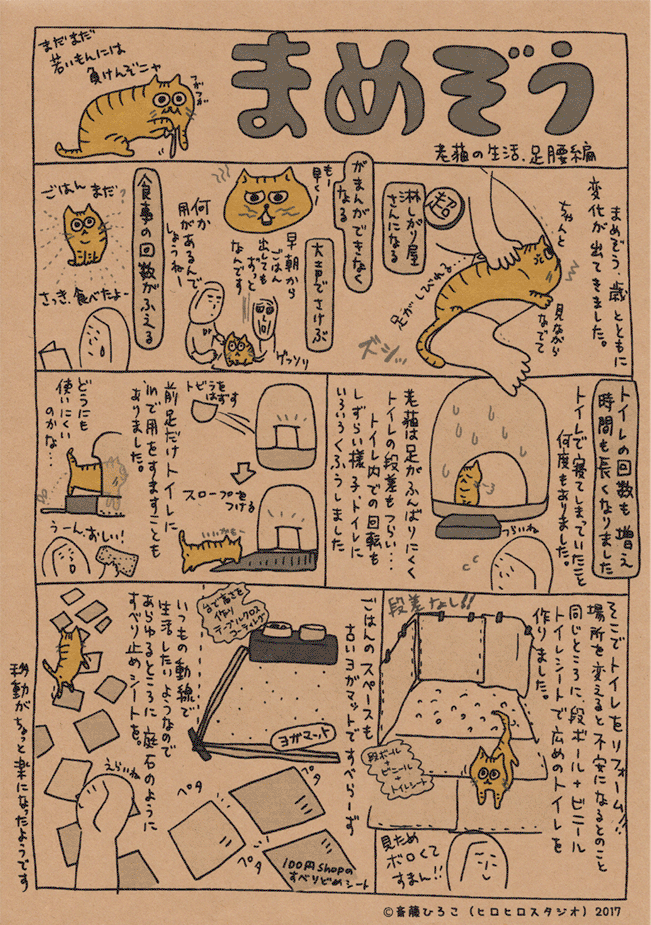 まだまだ
若いもんには
負けんぞニャ
フガフガ
まめぞう
老猫の生活、足腰編
まめぞう、歳とともに
変化が出てきました。
ちゃんと
見ながら
なでて
超。
淋しがり屋
さんになる
足がしびれる
ズシッ
がまんができなく
なる
もー
早くー
大声でさけぶ
早朝から
ごはん
出しても
ずっと
なんです
ゲッソリ
何か
用があるんで
しょうねー
食事の回数がふえる
ごはん まだ?
さっき、食べたよー
トイレの回数も増え
時間も長くなりました
トイレで寝てしまっていたこと
何度もありました。
つらいね
老猫は足がふんばりにくく
トイレの段差もつらい…
トイレ内での回転も
しずらい様子、トイレに
いろいろくふうしました
トビラを
はずす
スロープを
つける
いいかもー
前足だけトイレに
inで用をすますことも
ありました。
どうにも
使いにくい
のかな…
うーん、おしい!
そこでトイレをリフォーム!!
場所を変えると不安になるとのこと
同じところに、段ボール+ビニール
トイレシートで広めのトイレを
作りました。
段差なし!!
段ボール
+
ビニール
+
トイレシート
見ため
ボロくて
すまん!!
ごはんのスペースも
古いヨガマットですべらーず
台で高さを
作り
テーブルクロス
コーティング
ヨガマット
いつもの動線で
生活したいようなので
あらゆるところに 庭石のように
すべり止めシートを。
ペタ
ペタ
ペタ
100円shopの
すべりどめシート
えらいね
移動がちょっと楽になったようです
©斎藤ひろこ（ヒロヒロスタジオ）2017